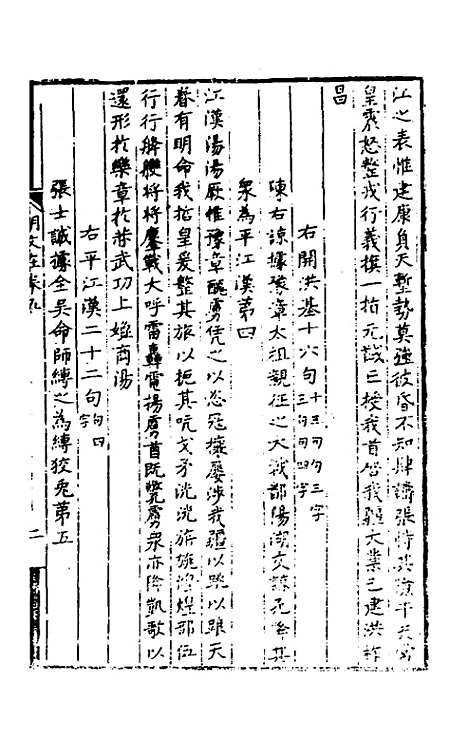 江之表惟建康負天塹勢莫強彼昏不知肆譸張恃淇濵干天常
皇震怒整戎行義旗一指元戩亡授我首啓我疆大業已建洪祚
昌
右開洪基十六句十三句句三字三句句四字
陳右諒據豫章太祖親征之大戰鄱陽湖友諒死降其
衆為平江漢第四
江漢湯湯厥惟豫章醜虜凭之以恣冦攘屢涉我疆以跳以踉天
眷有明命我皇爰整其旅以扼其吭戈矛洸洸旂旐煌煌部伍
行行舳艫將將鏖戰大呼雷轟電揚虜首既斃虜衆亦降凱歌以
還形於樂章於昔武功上媲商湯
右平江漢二十二句句四字
張士誠據全吳命師縛之為縛狡兎第五
明文在卷九
二